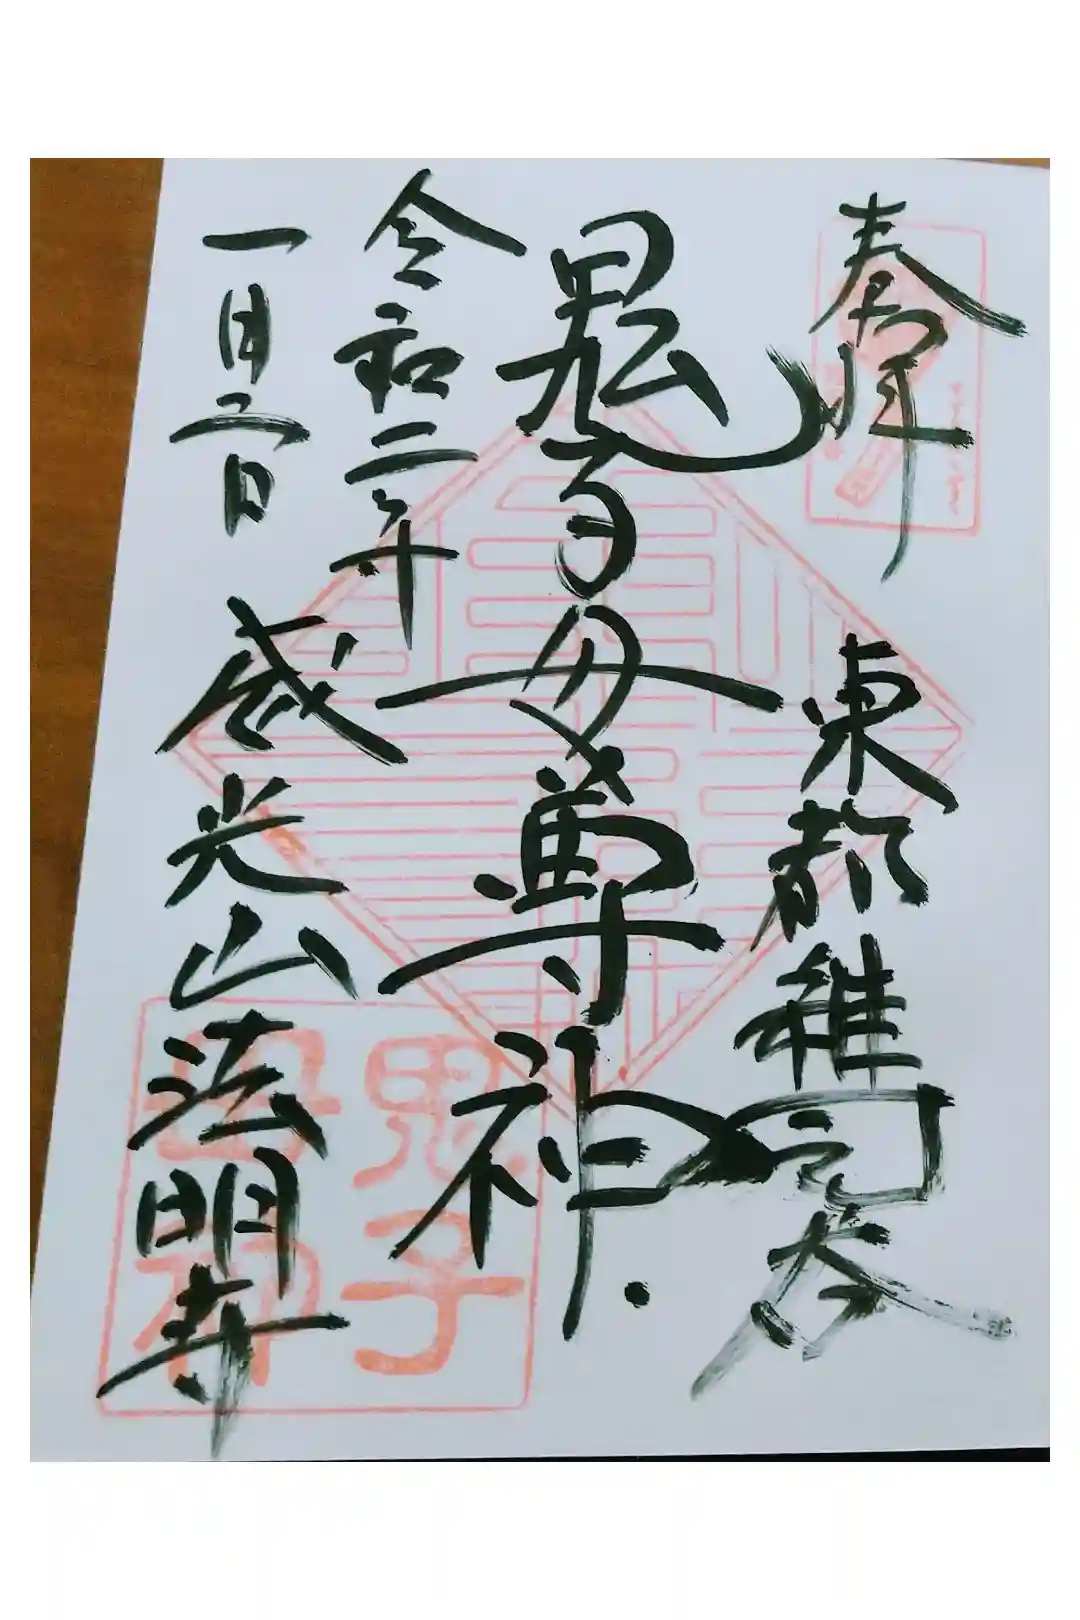 奉拝
東都雑司ヶ谷
鬼子母尊神
令和二年
一月二日
威光山法明寺
鬼子
母神